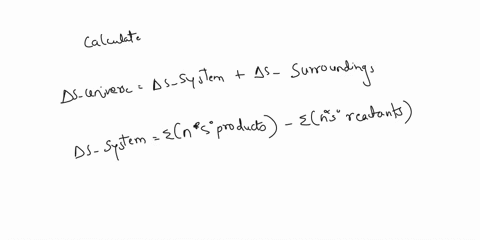 Calculate
ΔS-univerc = ΔS-System + ΔS- Surroundings
ΔS-System = Σ(n*s° products) - Σ(n*s° reactants)